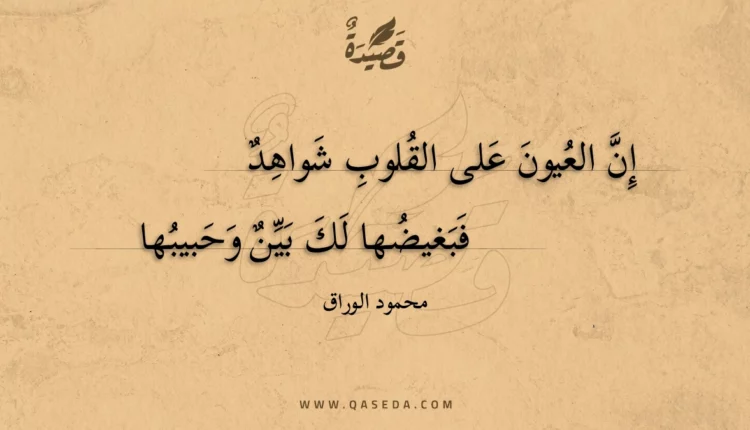 قَصِيدَةٌ
إِنَّ العُيونَ عَلى القُلوبِ شَواهِدٌ
فَبَغيضُها لَكَ بَيِّنٌ وَحَبيبُها
محمود الوراق
WWW.QASEDA.COM